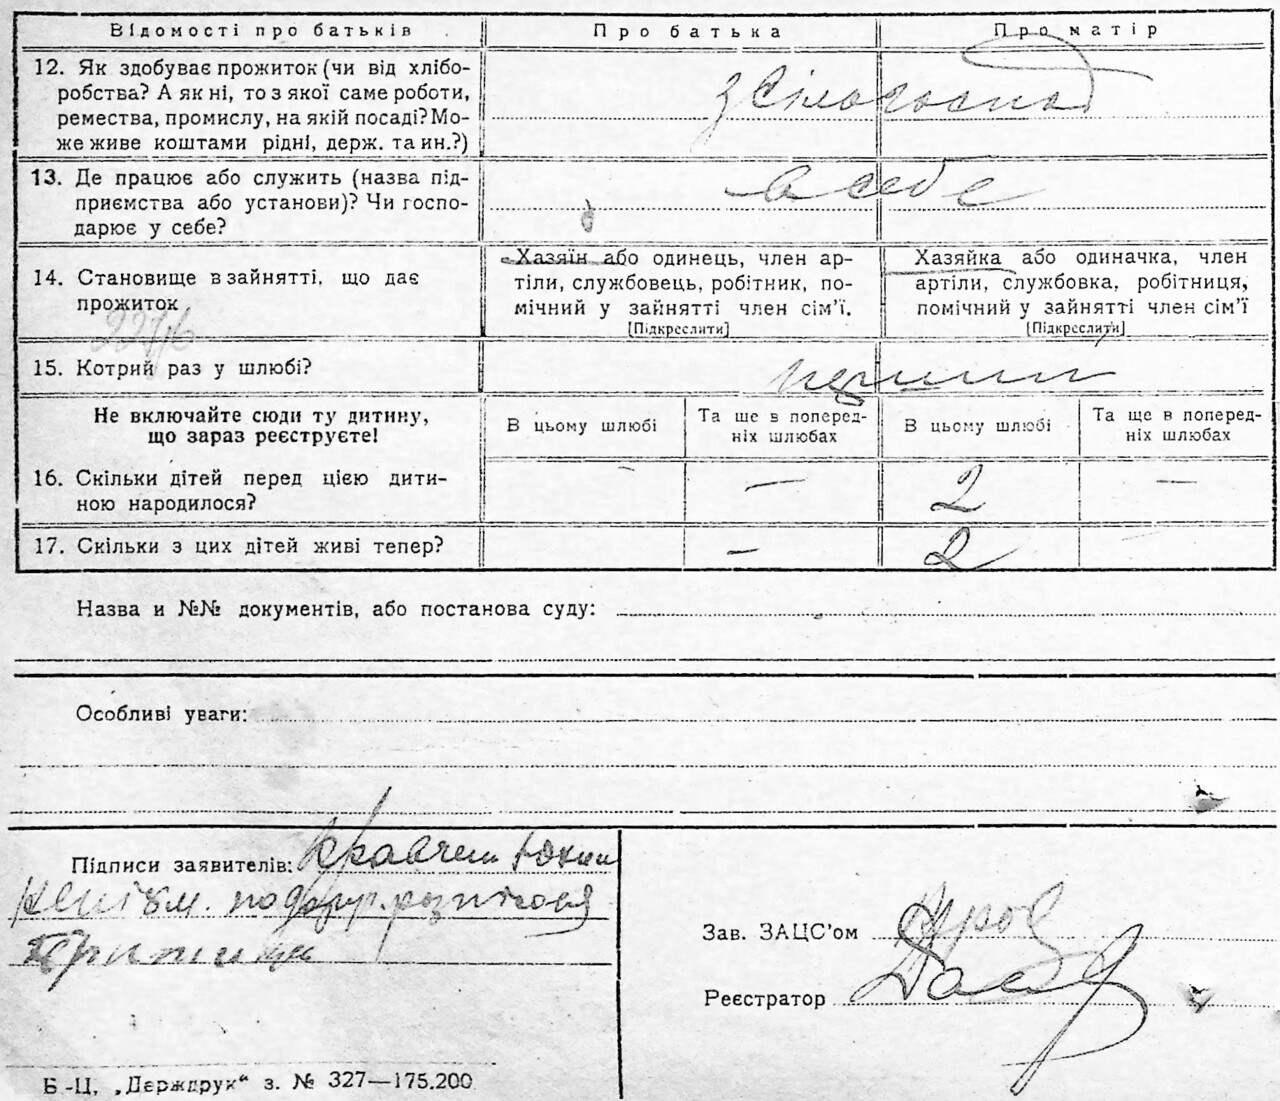 Відомості про батьків Про батька Про матір
12. Як здобуває прожиток (чи від хлібо-
робства? А як ні, то з якої саме роботи,
ремества, промислу, на якій посаді? Мо-
же живе коштами рідні, держ. та ин.?)
з сільгоспод
13. Де працює або служить (назва під-
приємства або установи)? Чи госпо-
дарює у себе?
в себе
14. Становище в зайнятті, що дає
прожиток
Хазяїн або одинець, член ар-
тіли, службовець, робітник, по-
мічний у зайнятті член сім'ї.
[Підкреслити]
Хазяйка або одиначка, член
артіли, службовка, робітниця,
помічний у зайнятті член сім'ї
[Підкреслити]
15. Котрий раз у шлюбі?
перший
Не включайте сюди ту дитину,
що зараз реєструєте!
В цьому шлюбі
Та ще в поперед-
ніх шлюбах
В цьому шлюбі
Та ще в поперед-
ніх шлюбах
16. Скільки дітей перед цією дити-
ною народилося?
— — 2 —
17. Скільки з цих дітей живі тепер?
— 2 —
Назва и №№ документів, або постанова суду:
Особливі уваги:
Підписи заявителів: Кравчен
Зав. ЗАЦС'ом
Реєстратор
Б-Ц, „Держдрук" з. № 327—175.200